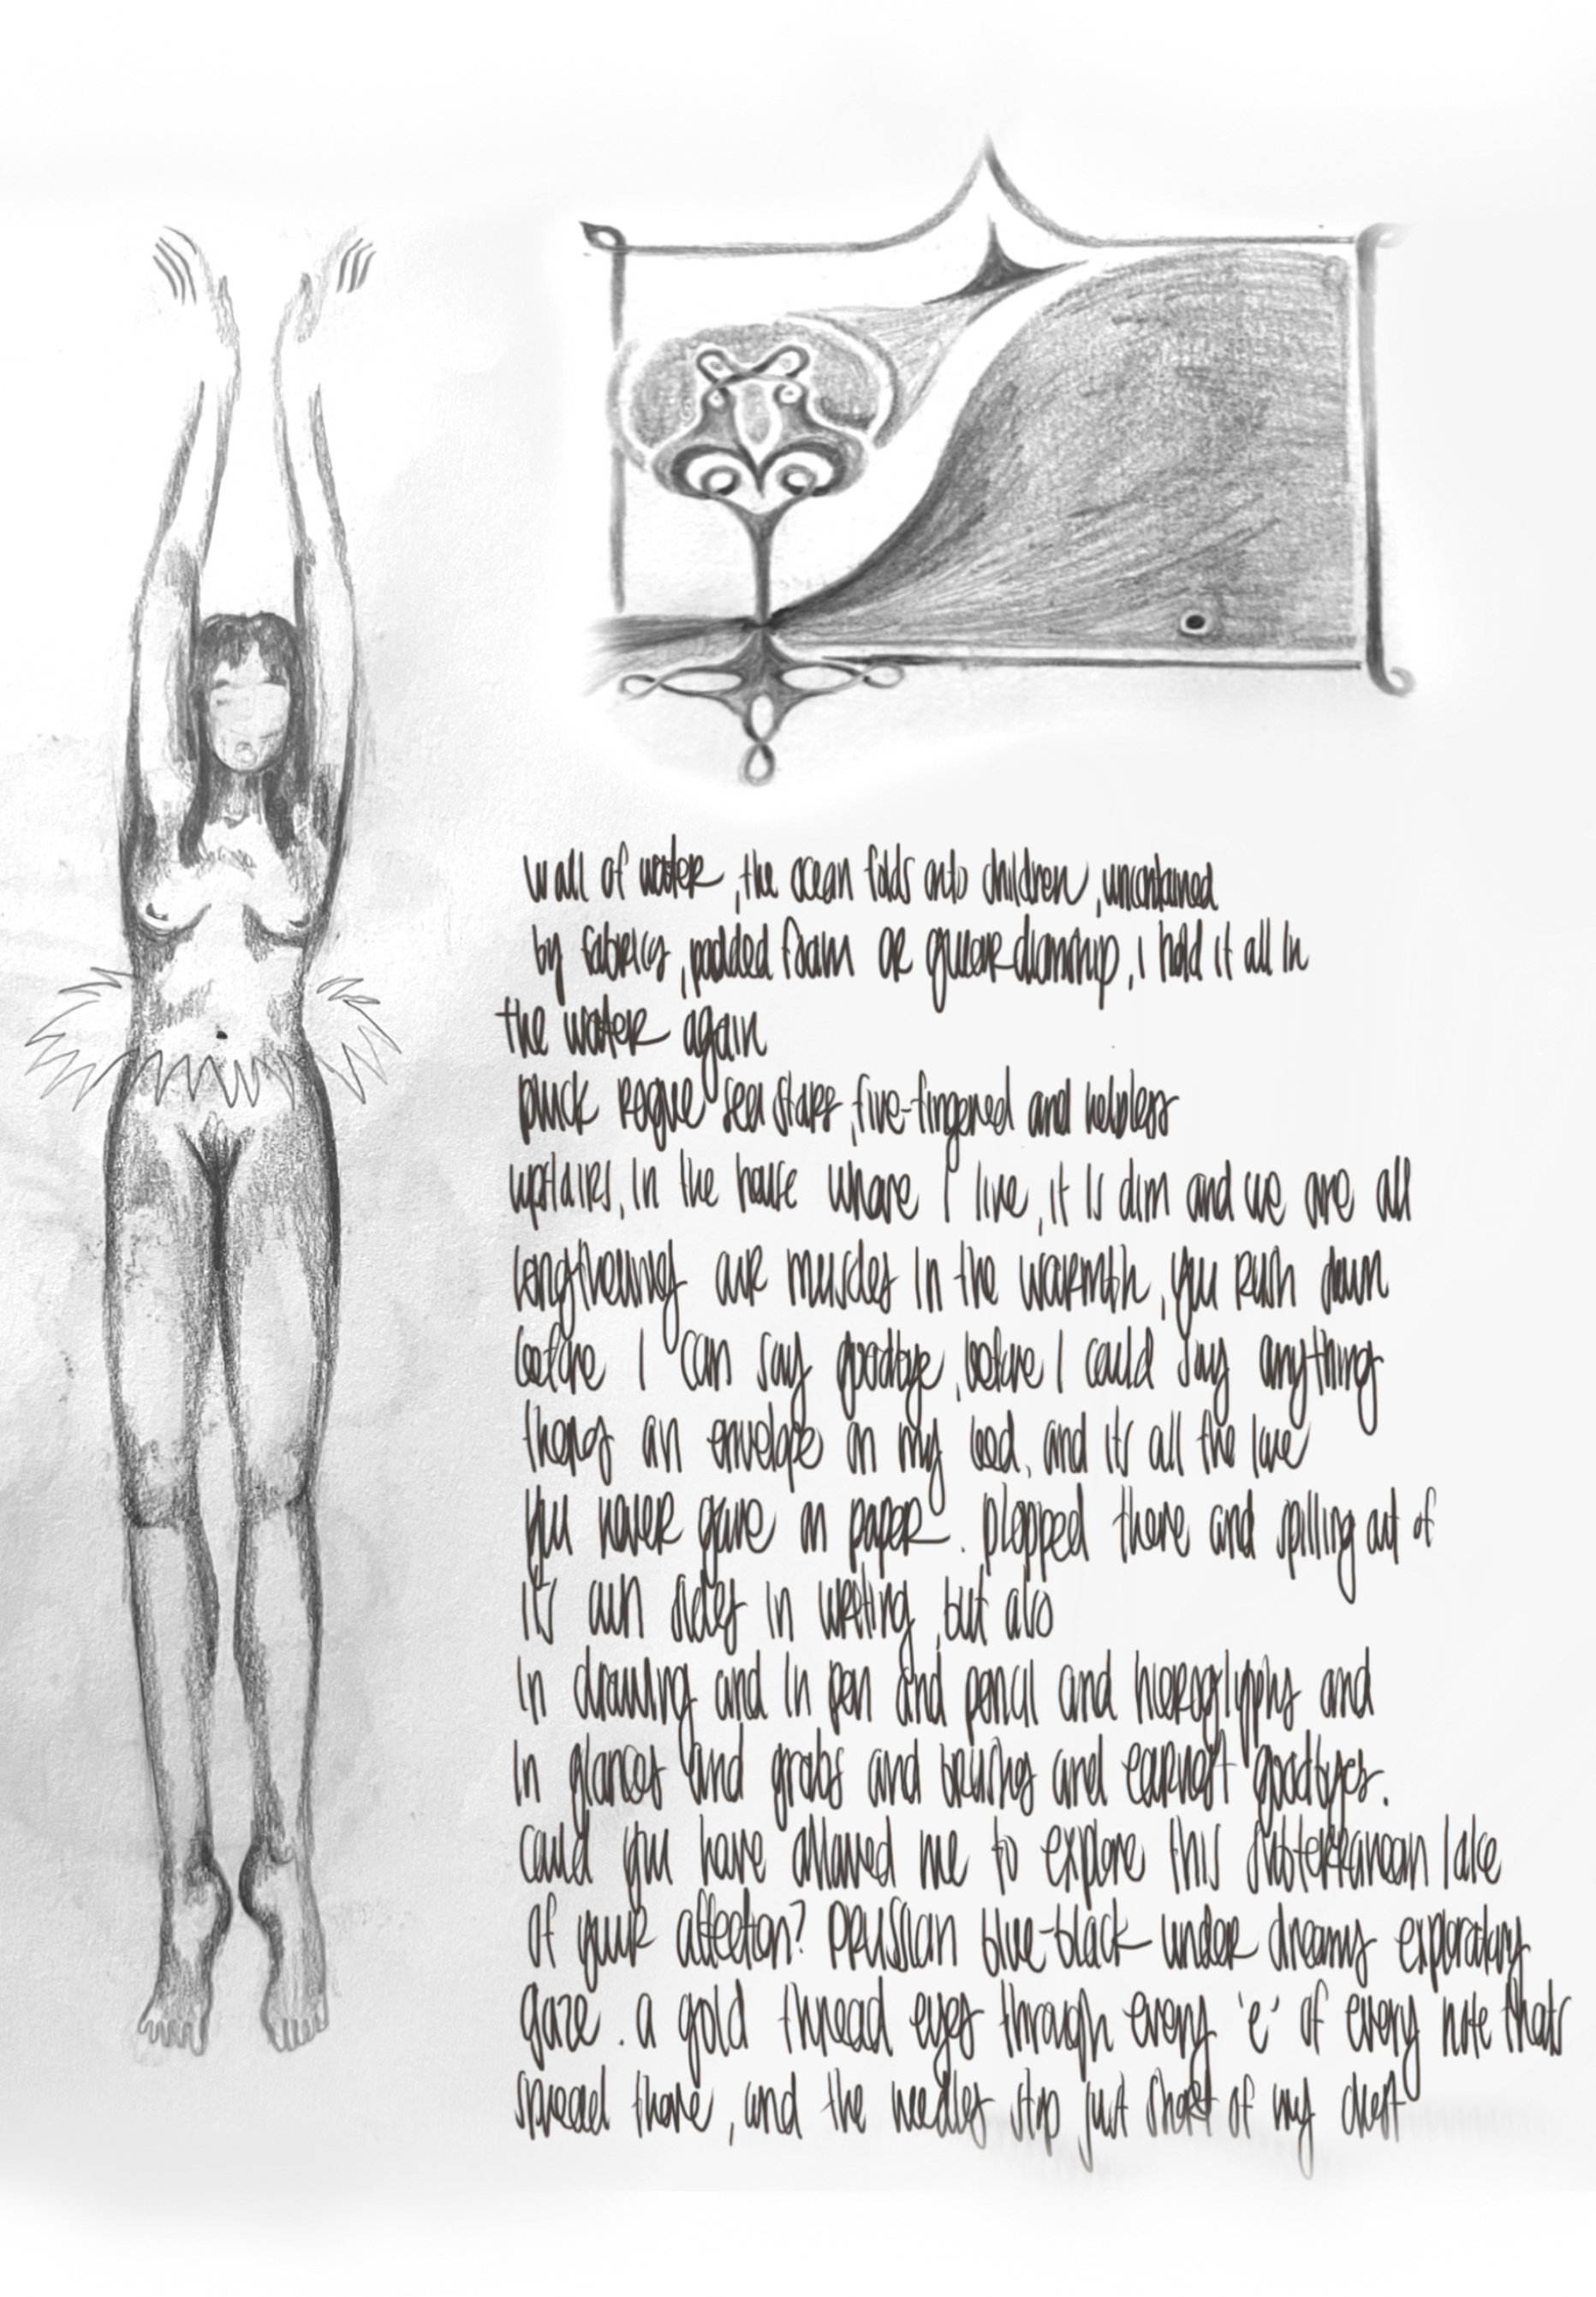 wall of water, the ocean folds onto children, uncontained
by fabrics, padded foam or guardianship, i hold it all in
the water again
pluck rogue sea stars, five-fingered and helpless
upstairs, in the house where I live, it is dim and we are all
lengthening our muscles in the warmth, you rush down
before I can say goodbye, before I could say anything
theres an envelope on my bed, and its all the love
you never gave on paper. plopped there and spilling out of
it's own sides in writing, but also
in drawing and in pen and pencil and hieroglyphs and
in glances and grabs and bruisings and earnest goodbyes.
could you have allowed me to explore this subterranean lake
of your affection? prussian blue-black under dreams exploratory
gaze. a gold thread eyes through every 'e' of every note thats
spread there, and the needles stop just short of my chest